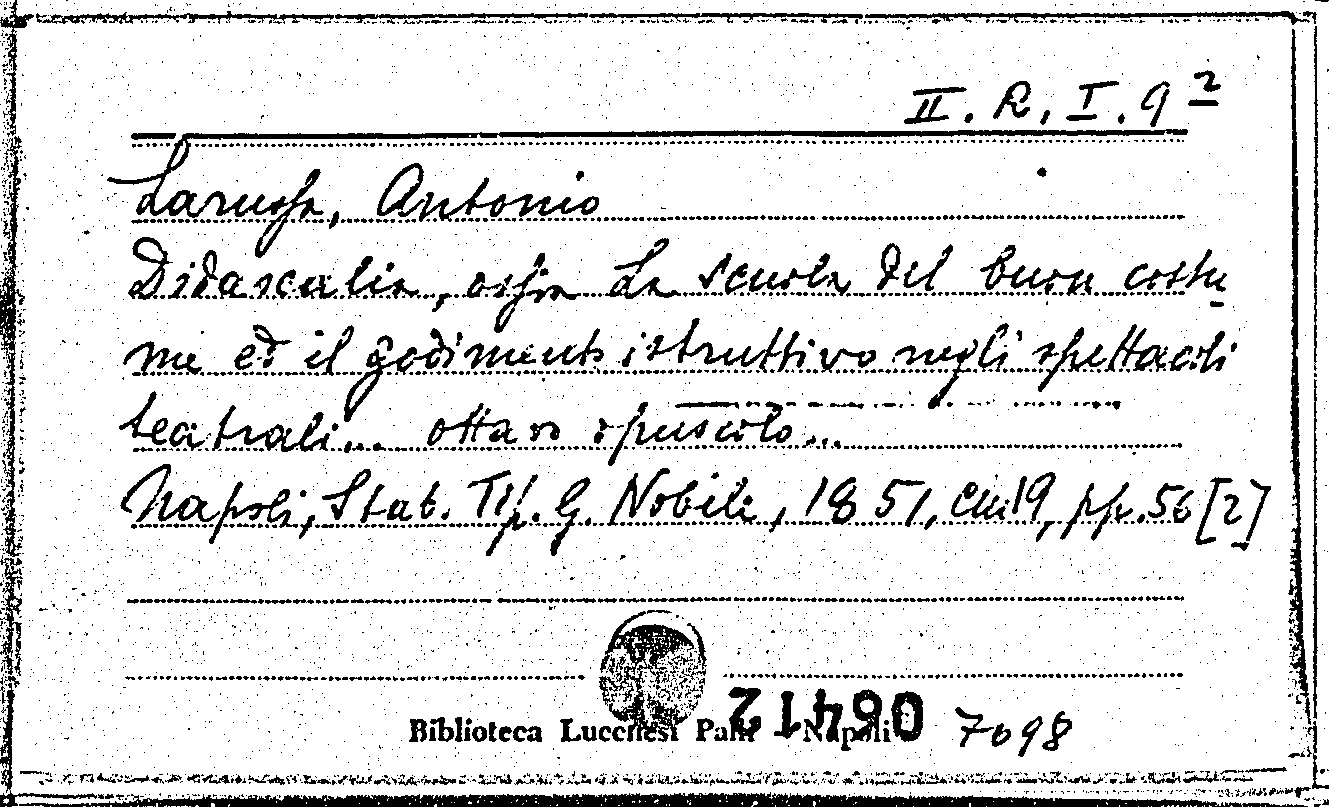 II. R. I. 9 2
Larussa, Antonio
Didascalia, ossia La scuola del buon costu
me ed il godimento istruttivo negli spettacoli
teatrali... ottavo opuscolo...
Napoli, Stab. Tip. G. Nobile, 1851, cm. 19, pp. 56 [2]
06412
Biblioteca Lucchesi Palli - Napoli 7098